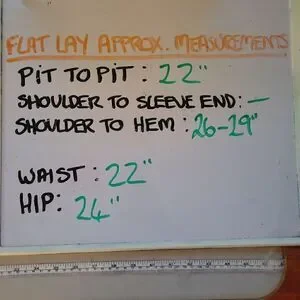 FLAT LAY APPROX. MEASUREMENTS
PIT TO PIT : 22"
SHOULDER TO SLEEVE END: —
SHOULDER TO HEM : 26-29"
WAIST : 22"
HIP: 24"